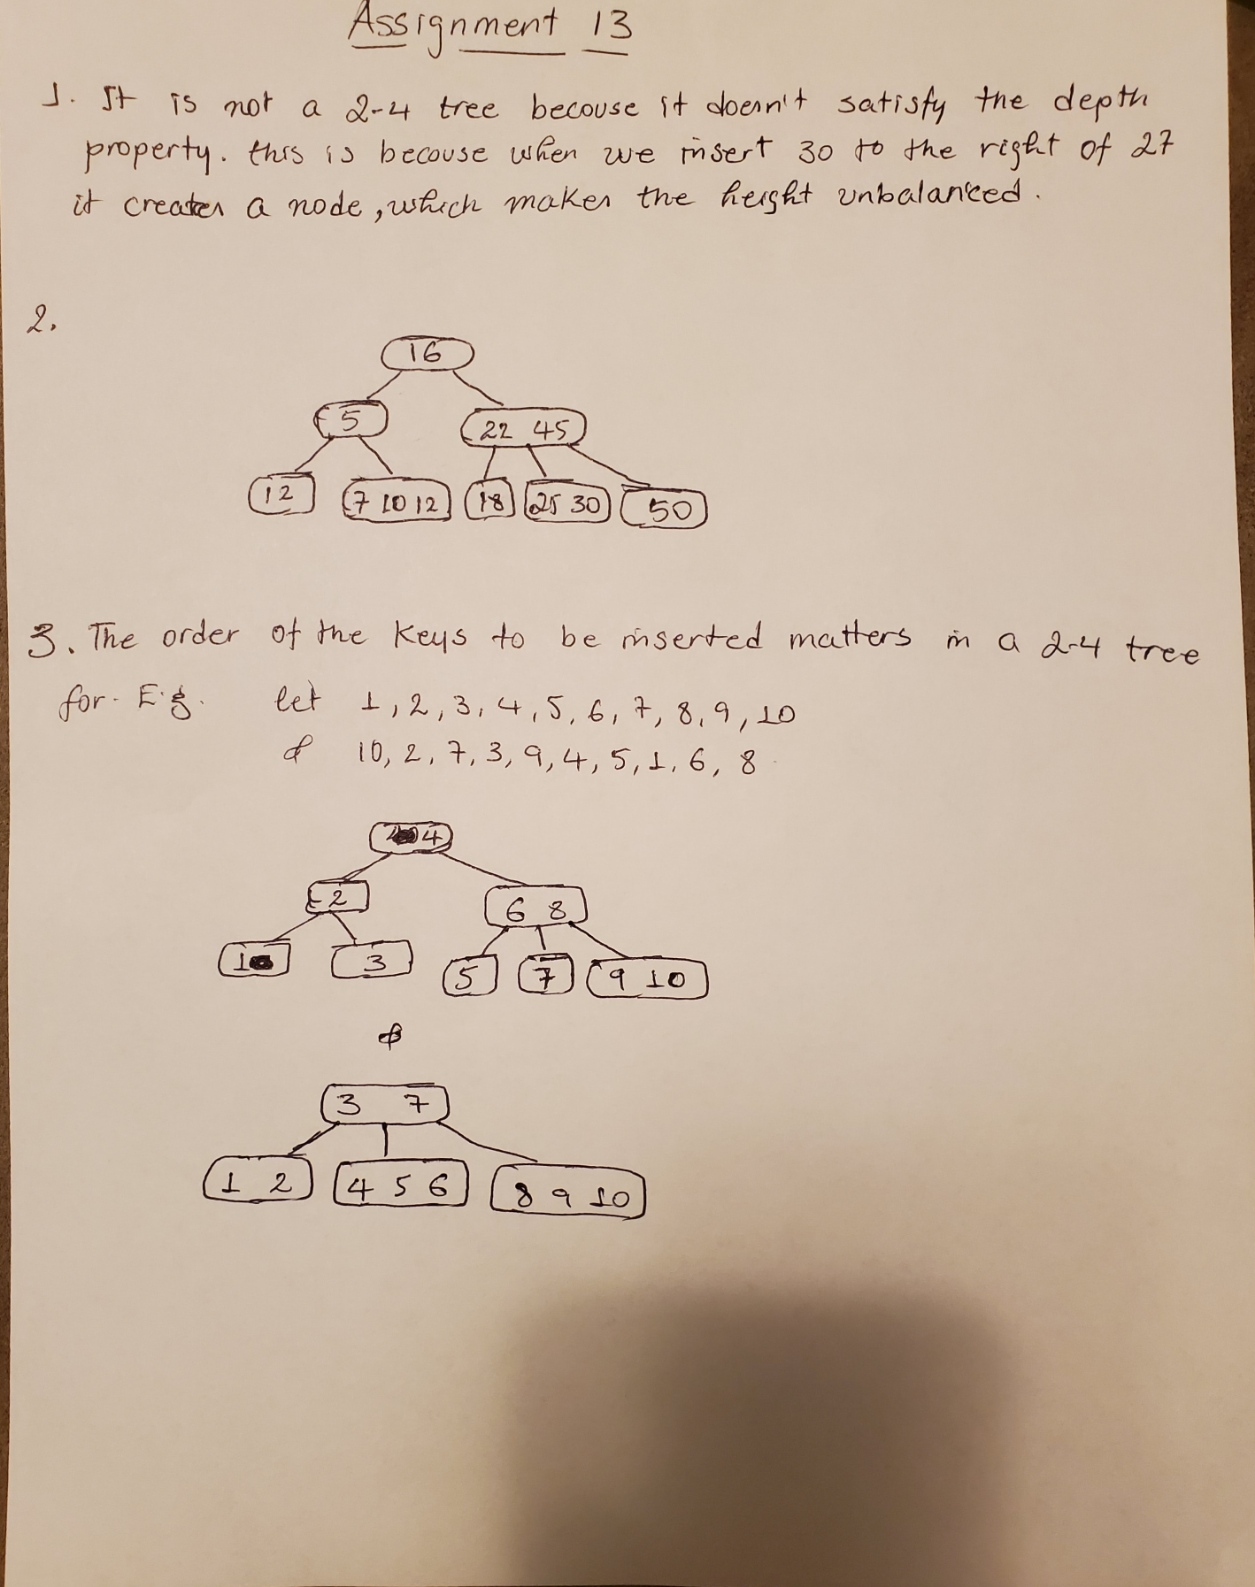 Assignment 13
1. It is not a 2-4 tree becouse it doesn't satisfy the depth
property. this is becouse when we insert 30 to the right of 27
it creates a node, which makes the height unbalanced.
2.
16
5
22 45
12
7 10 12
18
25 30
50
3. The order of the Keys to be inserted matters in a 2-4 tree
for. E.g. let 1, 2, 3, 4, 5, 6, 7, 8, 9, 10
& 10, 2, 7, 3, 9, 4, 5, 1, 6, 8
4
2
6 8
1
3
5
7
9 10
&
3 7
1 2
4 5 6
8 9 10